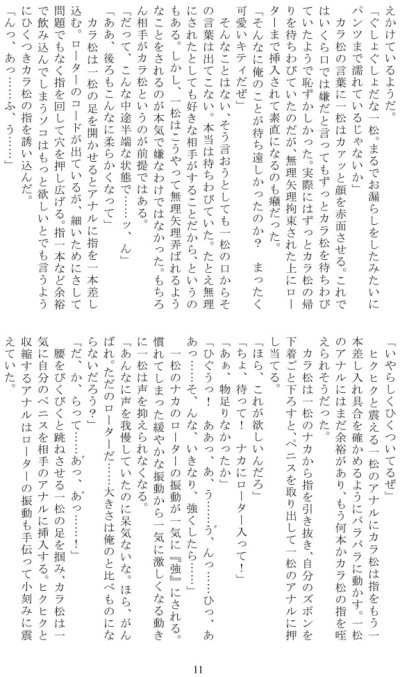 えかけているようだ。
「ぐしょぐしょだな一松。まるでお漏らしをしたみたいに
パンツまで濡れているじゃないか」
　カラ松の言葉に一松はカァッと顔を赤面させる。これで
はいくら口では嫌だと言ってもずっとカラ松を待ちわび
ていたようで恥ずかしかった。実際にはずっとカラ松の帰
りを待ちわびていたのだが、無理矢理拘束された上にロー
ターまで挿入されて素直になるのも癪だった。
「そんなに俺のことが待ち遠しかったのか？　まったく
可愛いキティだぜ」
　そんなことはない。そう言おうとしても一松の口からそ
の言葉は出てこない。本当は待ちわびていた。たとえ無理
にされたとしても好きな相手がすることだから、というの
もある。しかし、一松はこうやって無理矢理弄ばれるよう
なことをされるのが本気で嫌なわけではなかった。もちろ
ん相手がカラ松というのが前提ではある。
「だって、こんな中途半端な状態で……ッ、ん」
「ああ、後ろもこんなに柔らかくなって」
　カラ松は一松の足を開かせるとアナルに指を一本差し
込む。ローターのコードが出ているが、細いためにさして
問題でもなく指を回して穴を押し広げる。指一本など余裕
で飲み込んでしまうソコはもっと欲しいとでも言うよう
にひくつきカラ松の指を誘い込んだ。
「んっ、あっ……ふ、う……」
「いやらしくひくついてるぜ」
　ヒクヒクと震える一松のアナルにカラ松は指をもう一
本差し入れ具合を確かめるようにバラバラに動かす。一松
のアナルにはまだ余裕があり、もう何本かカラ松の指を咥
えられそうだった。
　カラ松は一松のナカから指を引き抜き、自分のズボンを
下着ごと下ろすと、ペニスを取り出して一松のアナルに押
し当てる。
「ほら、これが欲しいんだろ」
「ちょ、待って！　ナカにローター入って！」
「あぁ、物足りなかったか」
「ひぐうっ！　ああっ、あ、う……う、んっ……ひっ、あ
あっ……そ、んな、いきなり、強くしたら……」
　一松のナカのローターの振動が一気に『強』にされる。
慣れてしまった緩やかな振動から一気に激しくなる動き
に一松は声を抑えられなくなる。
「あんなに声を我慢していたのに呆気ないな。ほら、がん
ばれ。ただのローターだ……大きさは俺のと比べものにな
らないだろう？」
「だ、か、らって……あっ、あっ……！」
　腰をびくびくと跳ねさせる一松の足を掴み、カラ松は一
気に自分のペニスを相手のアナルに挿入する。ヒクヒクと
収縮するアナルはローターの振動も手伝って小刻みに震
えていた。
11